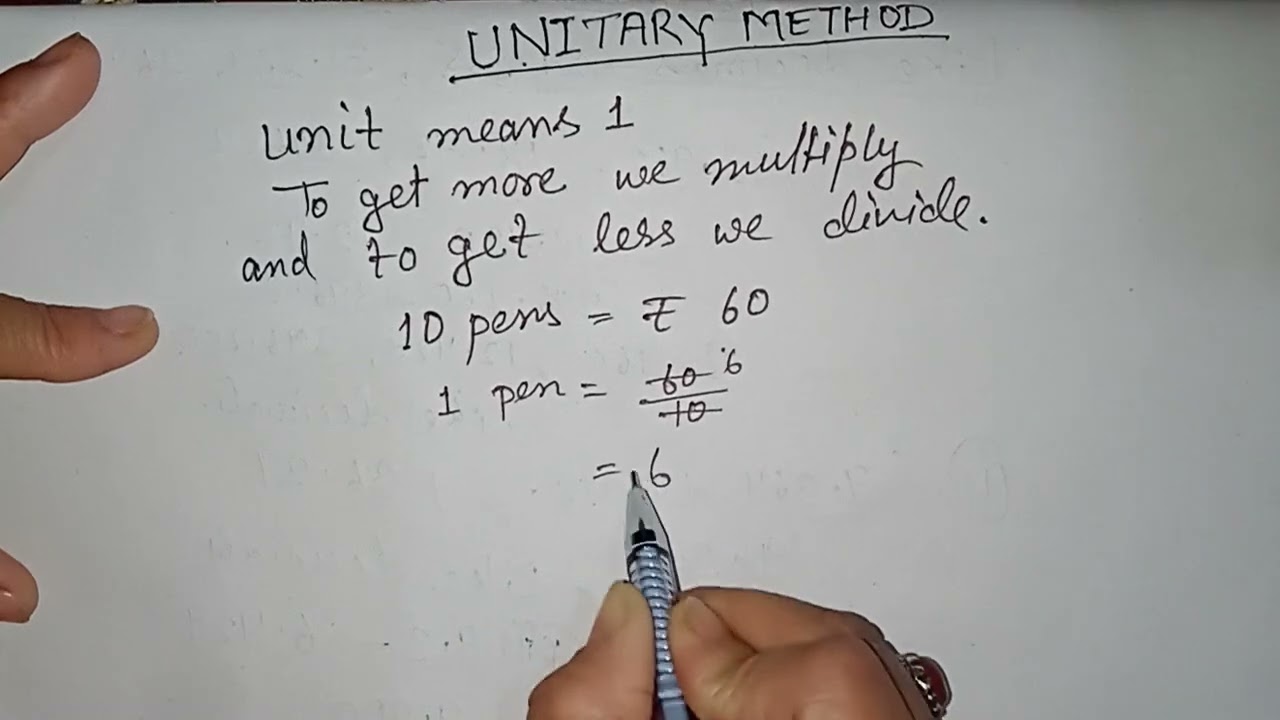 UNITARY METHOD
unit means 1
To get more we multiply
and to get less we divide.
10 pens = ₹ 60
1 pen = 60/10 6
= 6